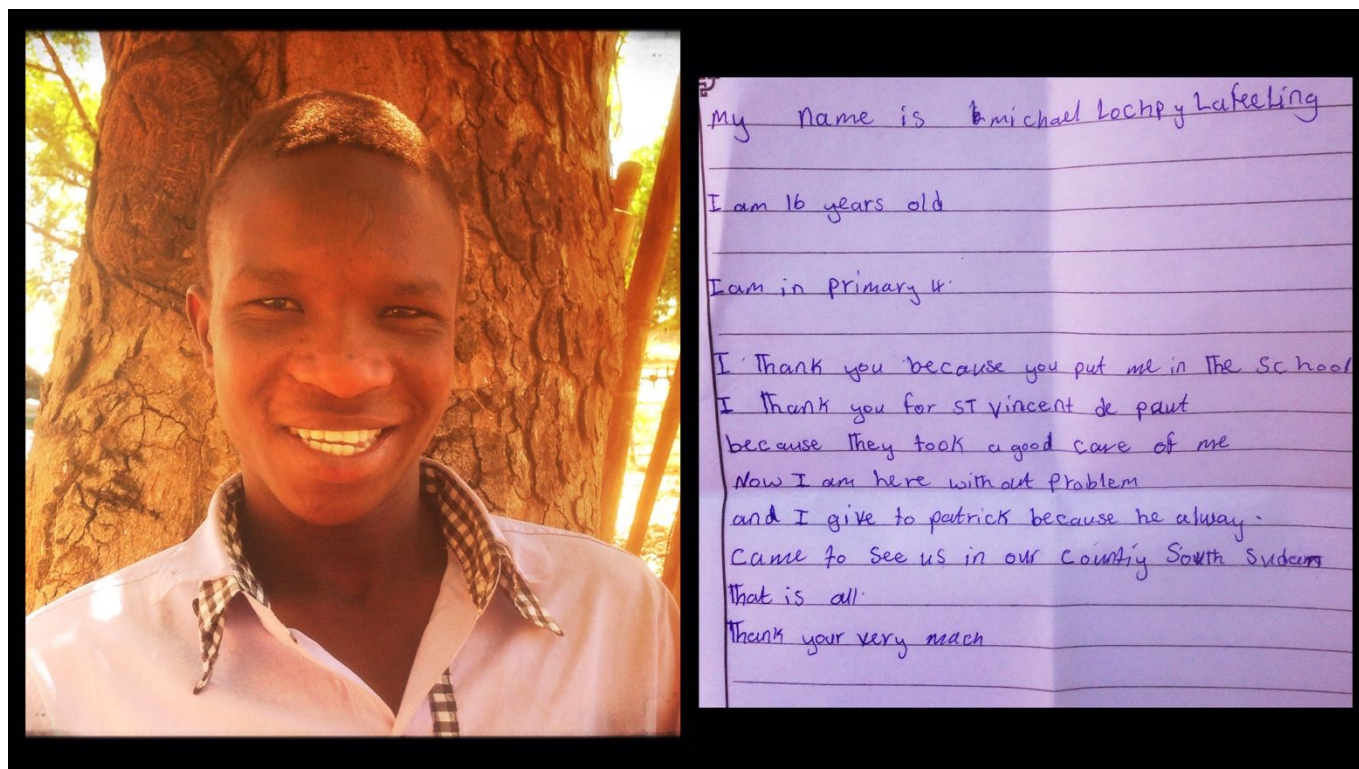 My name is michael Lochpy Lafeeling
I am 16 years old
I am in primary 4.
I Thank you because you put me in The School
I Thank you for ST Vincent de paut
because They took a good care of me
Now I am here with out problem
and I give to patrick because he alway.
Came to See us in our Countiy South Sudan
That is all.
Thank your very mach